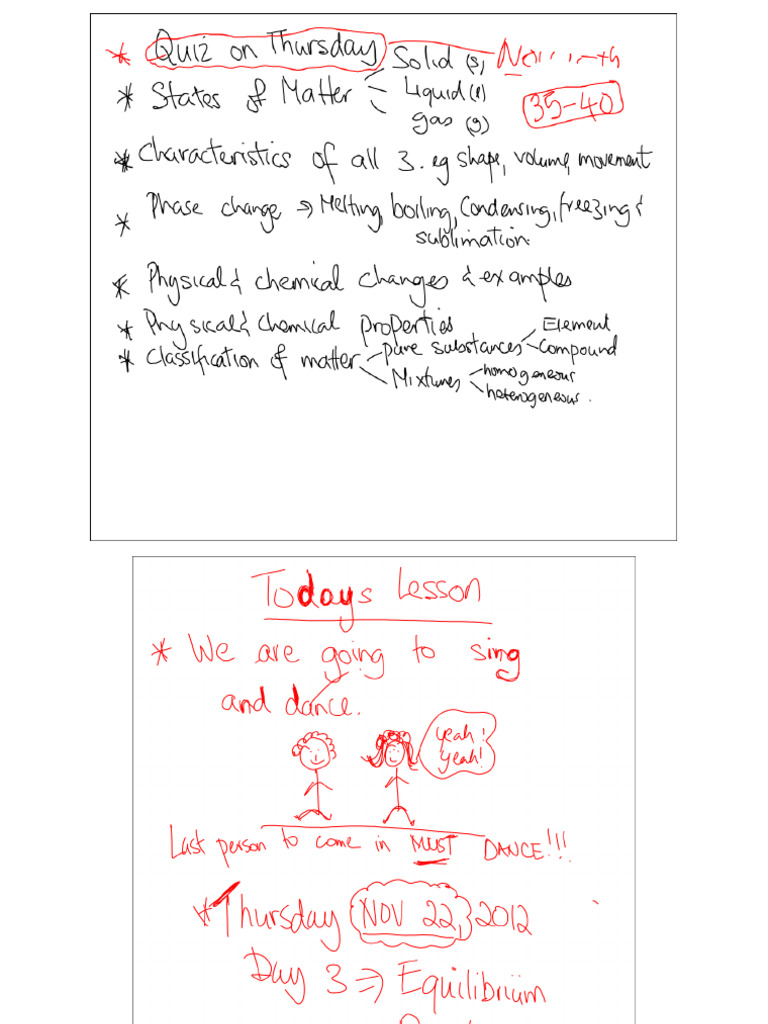 * Quiz on Thursday Solid (s)
* States of Matter Liquid (l) 35-40
gas (g)
* Characteristics of all 3. eg shape, volume, movement
* Phase change => Melting, boiling, Condensing, freezing &
sublimation.
* Physical & chemical changes & examples
* Physical & Chemical properties Element
* Classification of matter pure substances compound
Mixtures homogeneous
heterogeneous.
Todays Lesson
* We are going to sing
and dance.
yeah!
yeah!
Last person to come in MUST DANCE!!!
* Thursday NOV 22, 2012
Day 3 => Equilibrium